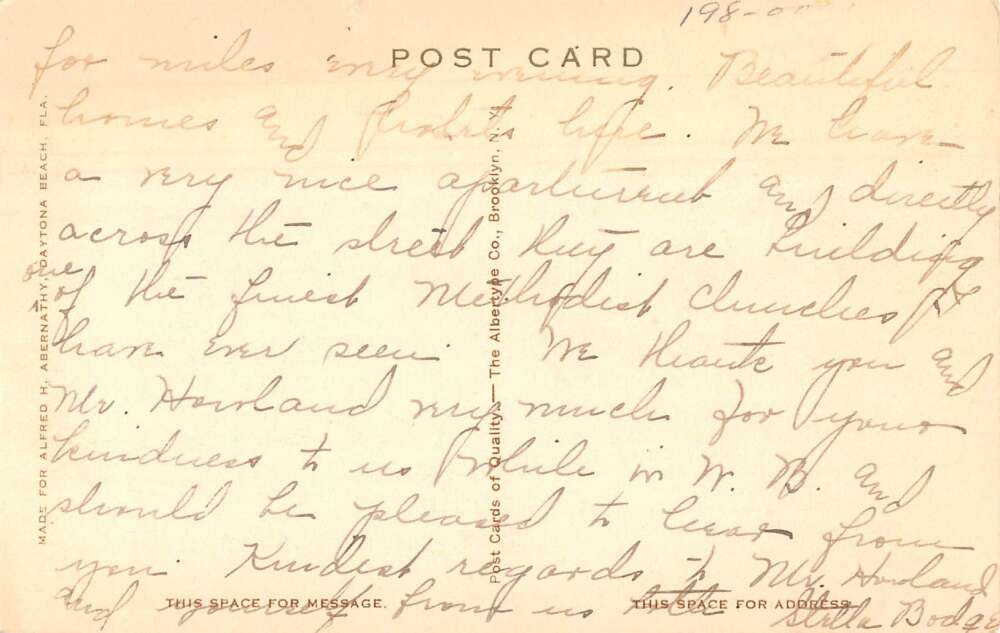 198-00
POST CARD
for miles every evening. Beautiful
homes and life. We have
a very nice apartment and directly
across the street they are building
one
of the finest Methodist Churches I
have ever seen. We thank you and
Mr. Howland very much for your
kindness to us while in W. B. and
should be pleased to hear from
you. Kindest regards to Mr. Howland
and yourself from us
Stella Bodge
THIS SPACE FOR MESSAGE.
THIS SPACE FOR ADDRESS.
MADE FOR ALFRED H. ABERNATHY, DAYTONA BEACH, FLA.
Post Cards of Quality. — The Albertype Co., Brooklyn, N. Y.